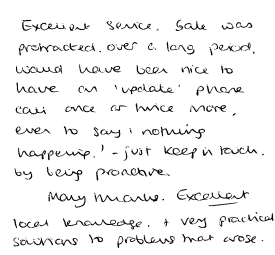 Excellent service. Sale was
protracted, over a long period,
would have been nice to
have an 'update' phone
call once or twice more,
even to say 'nothing
happening.' - just keep in touch.
by being proactive.
Many thanks. Excellent
local knowledge. + very practical
solutions to problems that arose.